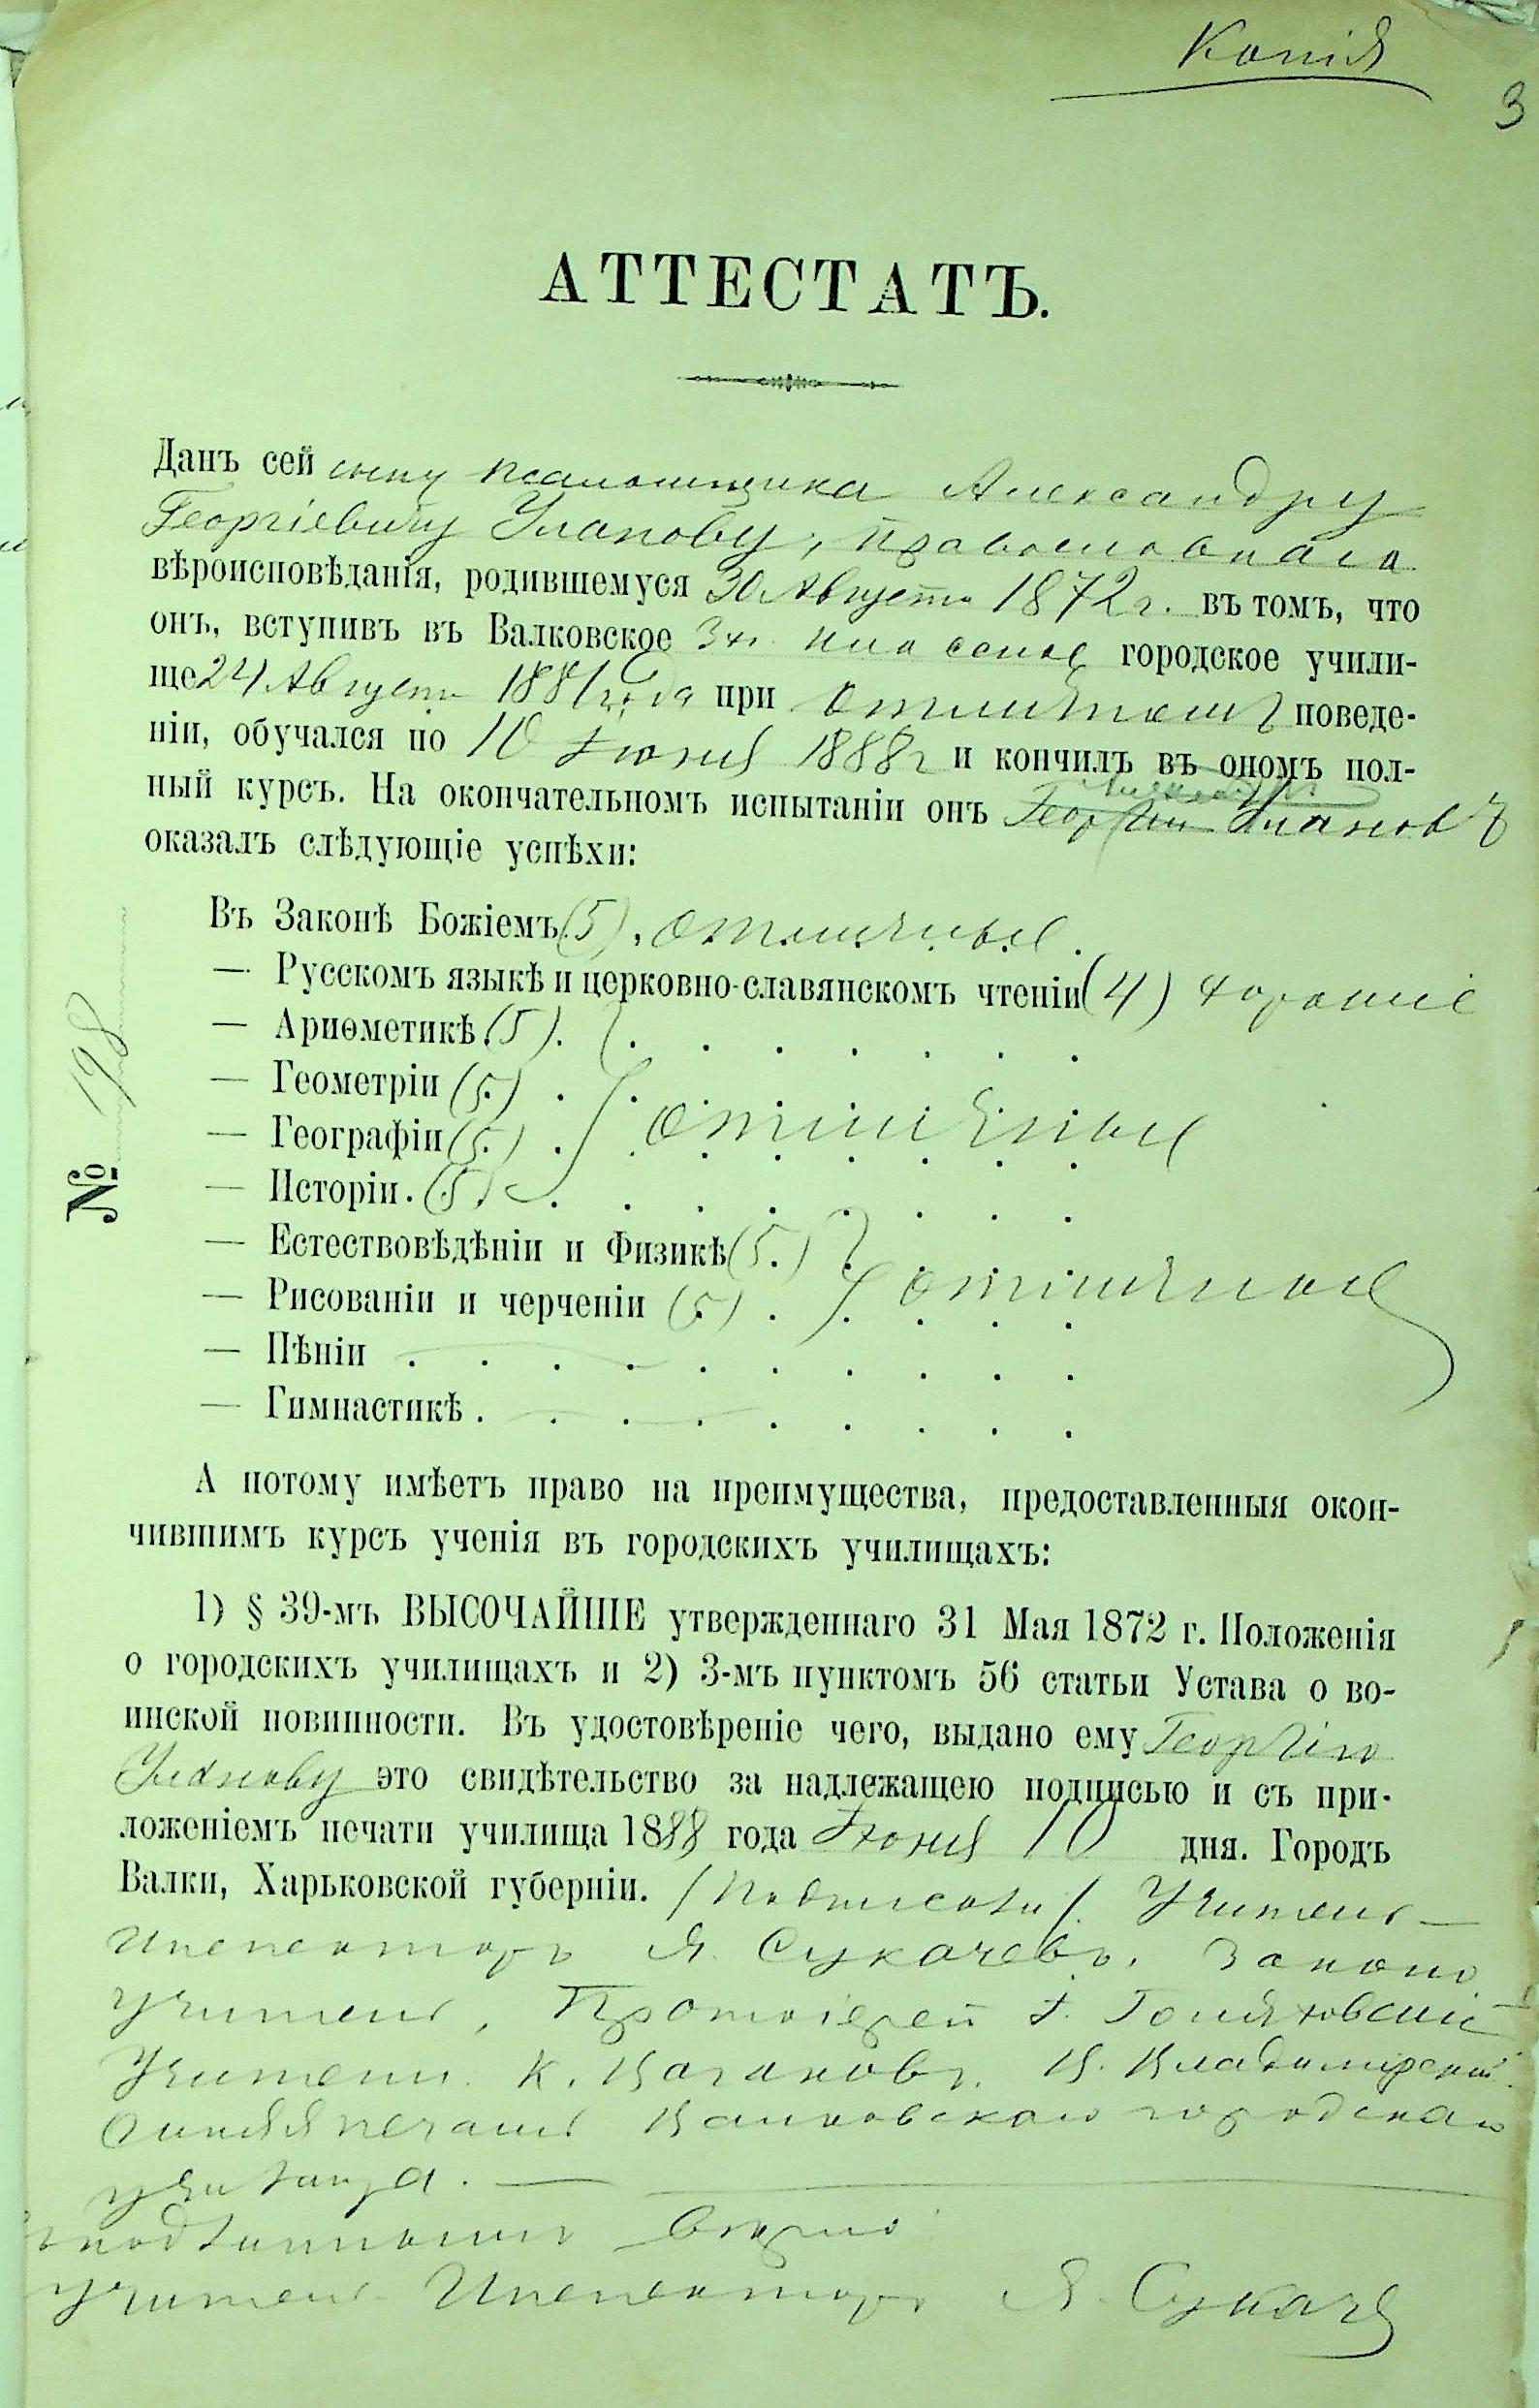 Копія
3
АТТЕСТАТЪ.
Данъ сей сыну псаломщика Александру
Георгіевичу Уланову, православнаго
вѣроисповѣданія, родившемуся 30 Августа 1872 г. въ томъ, что
онъ, вступивъ въ Валковское 3хъ классное городское учили-
ще 24 Августа 1881 года при отличномъ поведе-
ніи, обучался по 10 Іюня 1888 г и кончилъ въ ономъ пол-
ный курсъ. На окончательномъ испытаніи онъ Георгій Александръ Улановъ
оказалъ слѣдующіе успѣхи:
Въ Законѣ Божіемъ (5), отличные.
— Русскомъ языкѣ и церковно-славянскомъ чтеніи (4) хорошіе
— Ариѳметикѣ (5).
— Геометріи (5.)
— Географіи (5.) отличные
— Исторіи. (5)
— Естествовѣдѣніи и Физикѣ (5.)
— Рисованіи и черченіи (5) отличные
— Пѣніи
— Гимнастикѣ.
№ 198
А потому имѣетъ право на преимущества, предоставленныя окон-
чившимъ курсъ ученія въ городскихъ училищахъ:
1) § 39-мъ ВЫСОЧАЙШЕ утвержденнаго 31 Мая 1872 г. Положенія
о городскихъ училищахъ и 2) 3-мъ пунктомъ 56 статьи Устава о во-
инской повинности. Въ удостовѣреніе чего, выдано ему Георгію
Уланову это свидѣтельство за надлежащею подписью и съ при-
ложеніемъ печати училища 1888 года Іюня 10 дня. Городъ
Валки, Харьковской губерніи. /Подписали/. Учитель—
Инспекторъ Я. Сукачевъ. Законо
учитель, Протоіерей І.
Учители К. В. Владимірскій.
печать Валковскаго городскаго
училища. —
Съ подлиннымъ вѣрно:
Учитель Инспекторъ Я. Сукачев